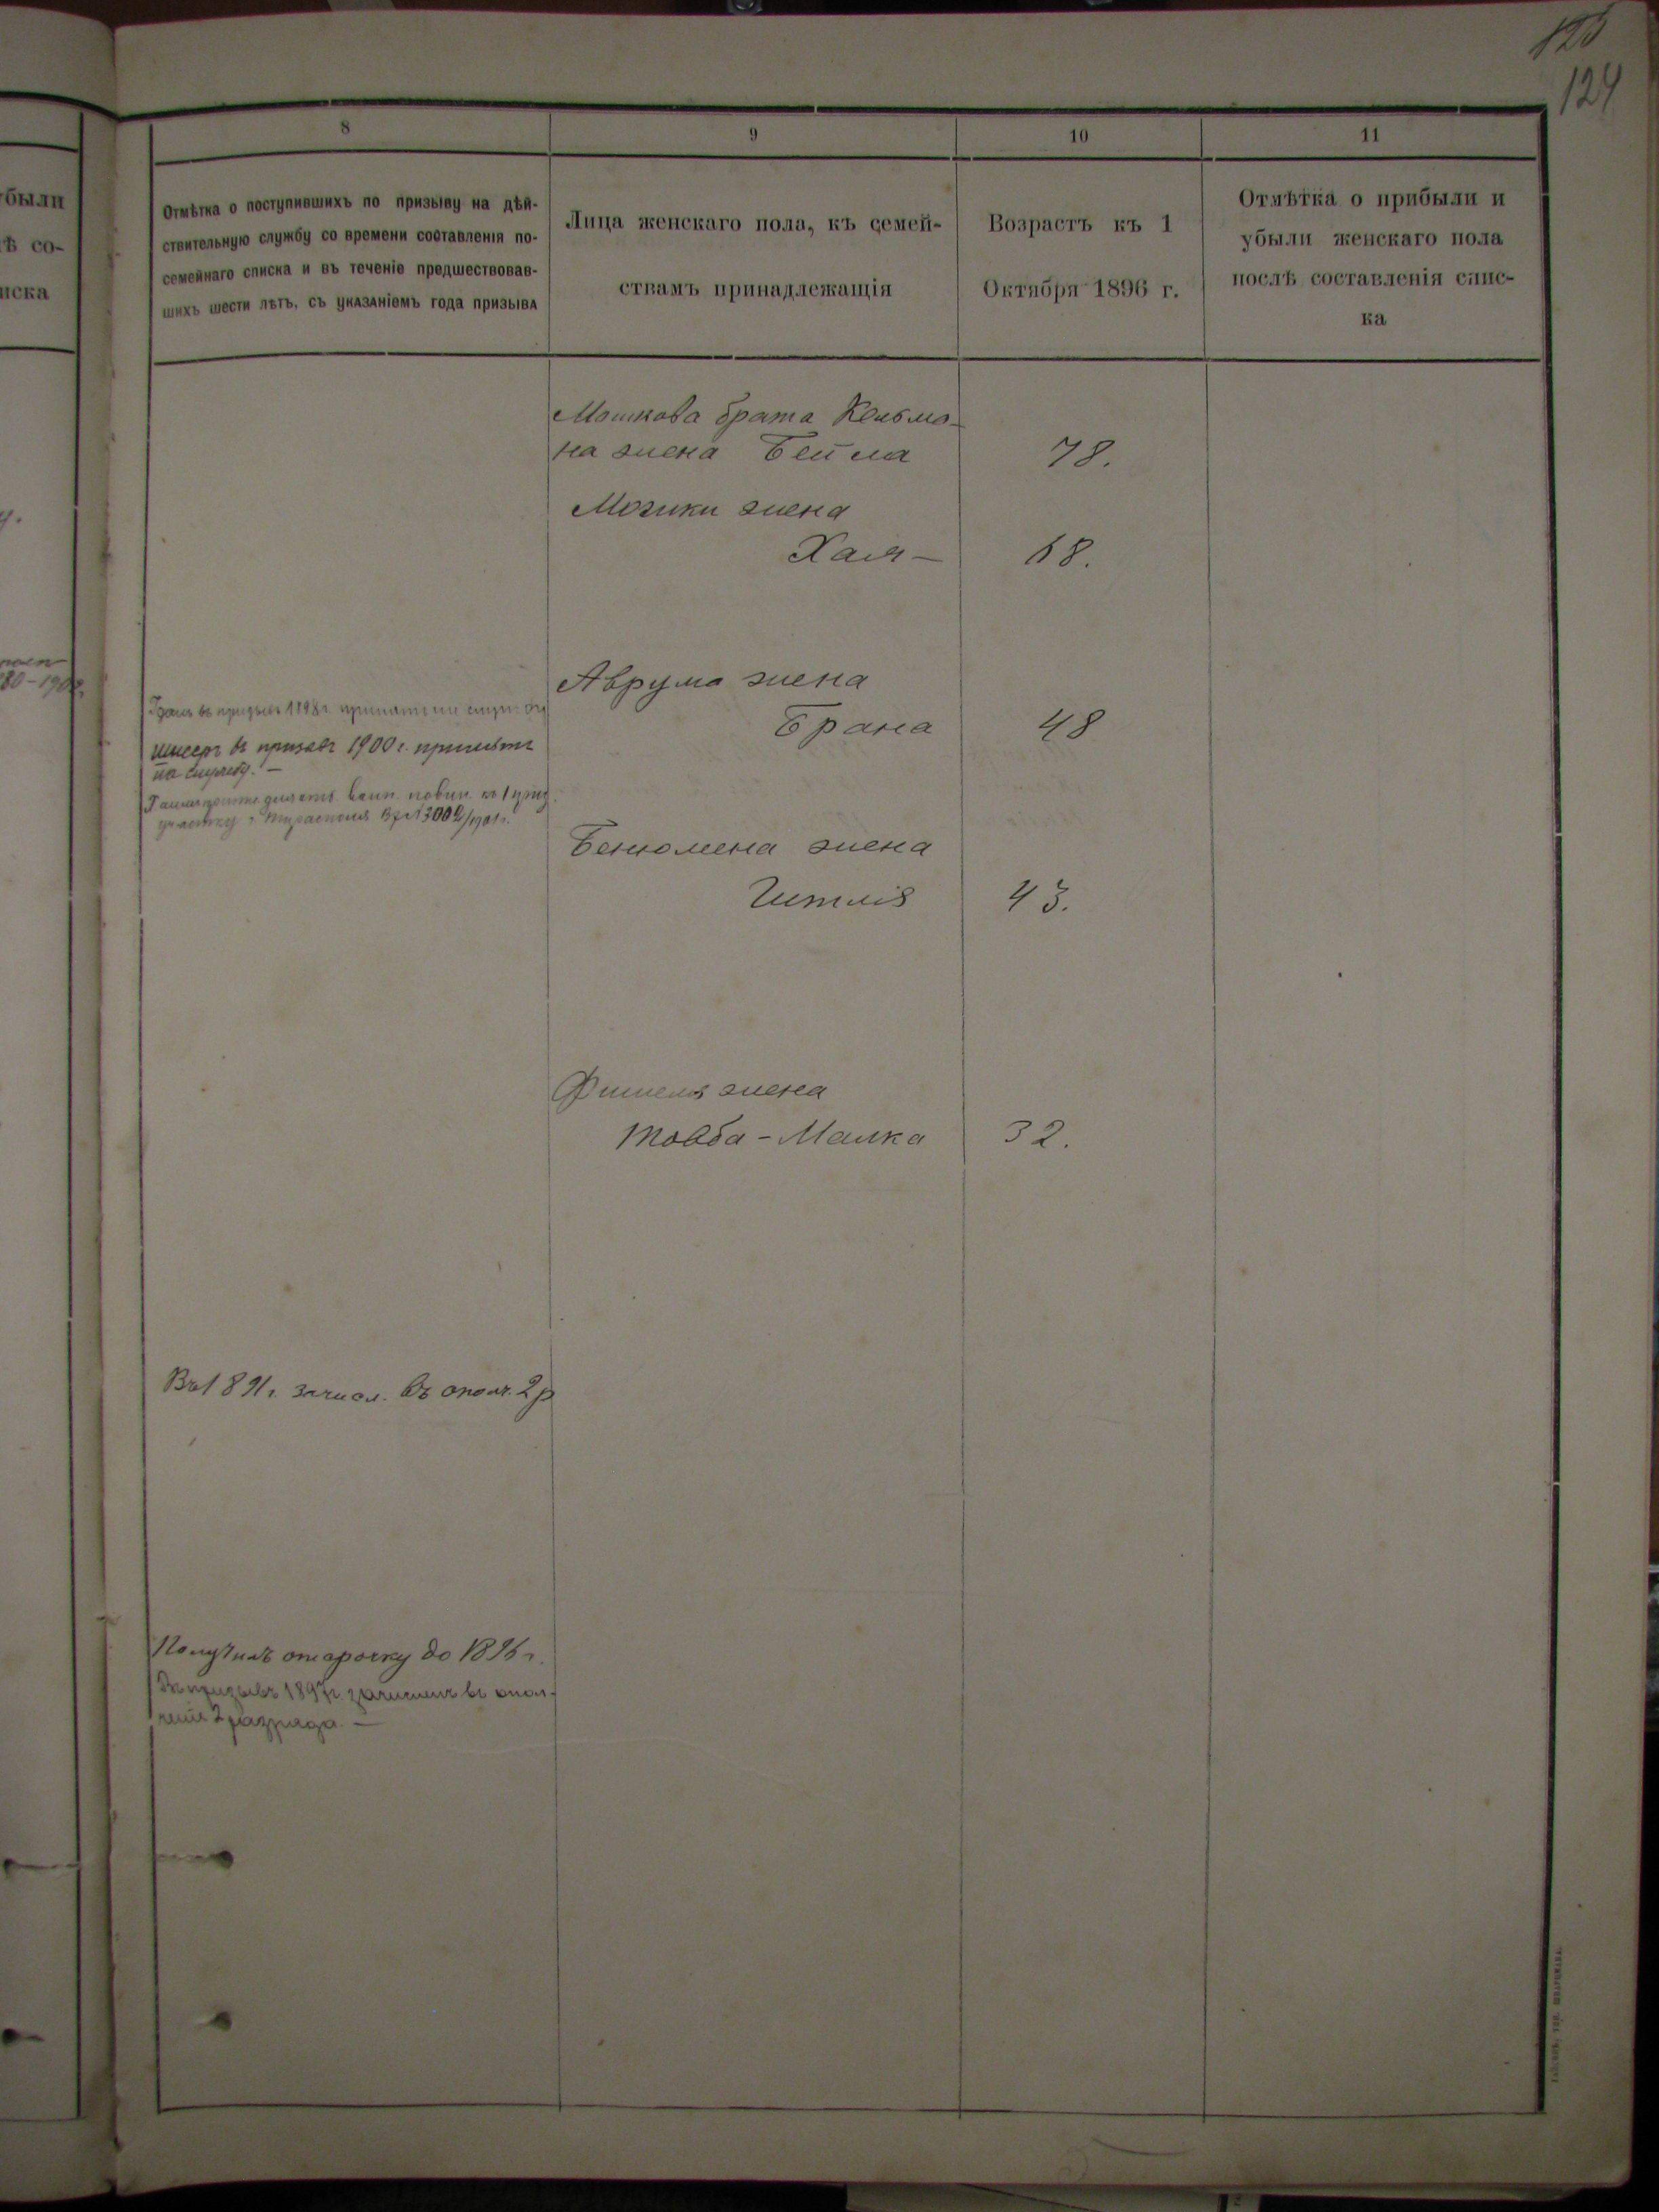 125
124
8
9
10
11
были
ѣ со-
иска
Отмѣтка о поступившихъ по призыву на дѣй-
ствительную службу со времени составленія по-
семейнаго списка и въ теченіе предшествовав-
шихъ шести лѣтъ, съ указаніемъ года призыва
Лица женскаго пола, къ семей-
ствамъ принадлежащія
Возрастъ къ 1
Октября 1896 г.
Отмѣтка о прибыли и
убыли женскаго пола
послѣ составленія спис-
ка
Мошкова брата Кельма-
на жена Бейла 78.
Мошки жена
Хая — 68.
Аврума жена
Брана 48
въ призывъ 1898 г. принятъ на
въ призывъ 1900 г. принятъ
на службу. —
воин. повин. по 1 приз.
участку г. Тирасполя № 3002/1901 г.
Бенюмена жена
Гитля 43.
Фишеля жена
Товба - Малка 32.
Въ 1891 г. зачисл. въ ополч. 2 р
Получилъ отсрочку до 1896 г.
Въ призывъ 1897 г. зачисленъ въ опол-
ченіе 2 разряда. —